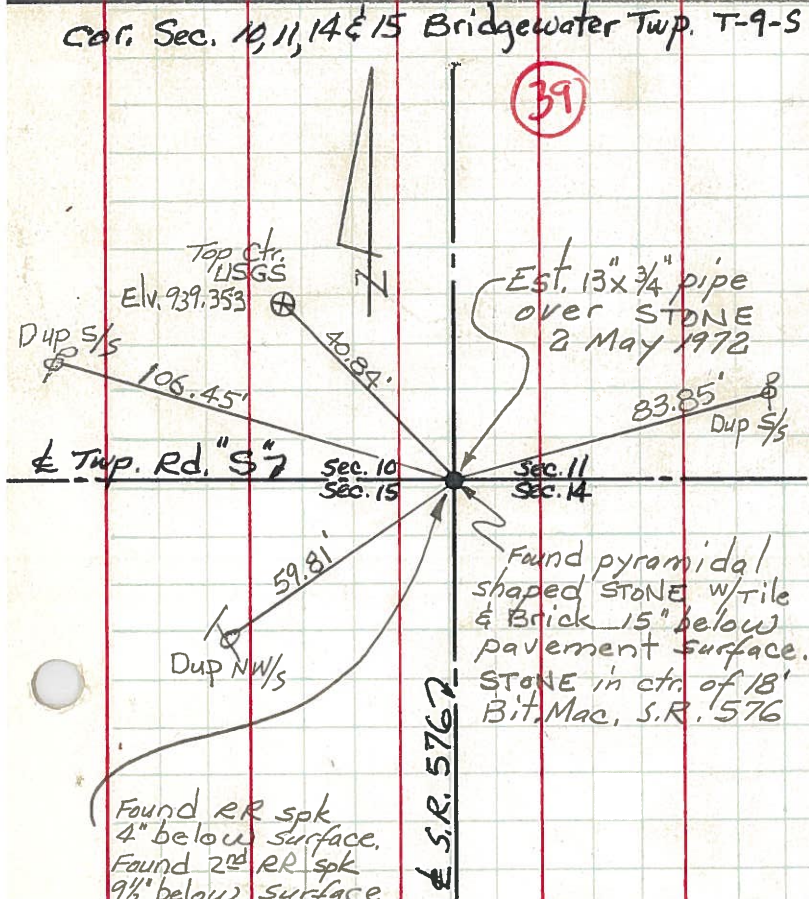 Cor. Sec. 10, 11, 14 & 15 Bridgewater Twp. T-9-S
39
N
Top Ctr.
USGS
Elv. 939.353
Est. 13" x 3/4" pipe
over STONE
2 May 1972
Dup S/S
106.45'
40.84'
83.85'
Dup S/S
℄ Twp. Rd. "S"
Sec. 10
Sec. 11
Sec. 15
Sec. 14
59.81'
Dup NW/S
Found pyramidal
shaped STONE w/Tile
& Brick 15" below
pavement surface.
STONE in ctr. of 18'
Bit. Mac. S.R. 576
℄ S.R. 576
Found RR spk
4" below surface.
Found 2nd RR spk
9½" below surface